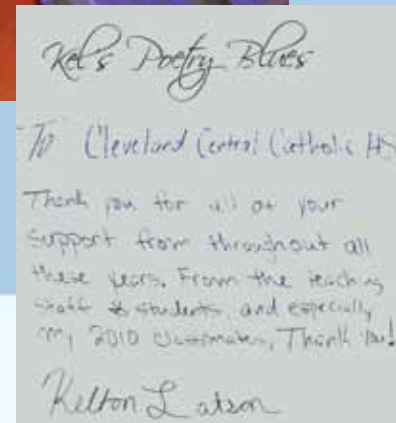 Kel's Poetry Blues
To Cleveland Central Catholic HS
Thank you for all of your
support from throughout all
these years. From the teaching
staff & students, and especially
my 2010 classmates, Thank You!
Kelton Latson